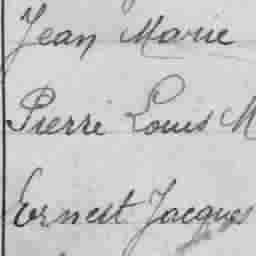 Jean Marie
Pierre Louis M
Ernest Jacques